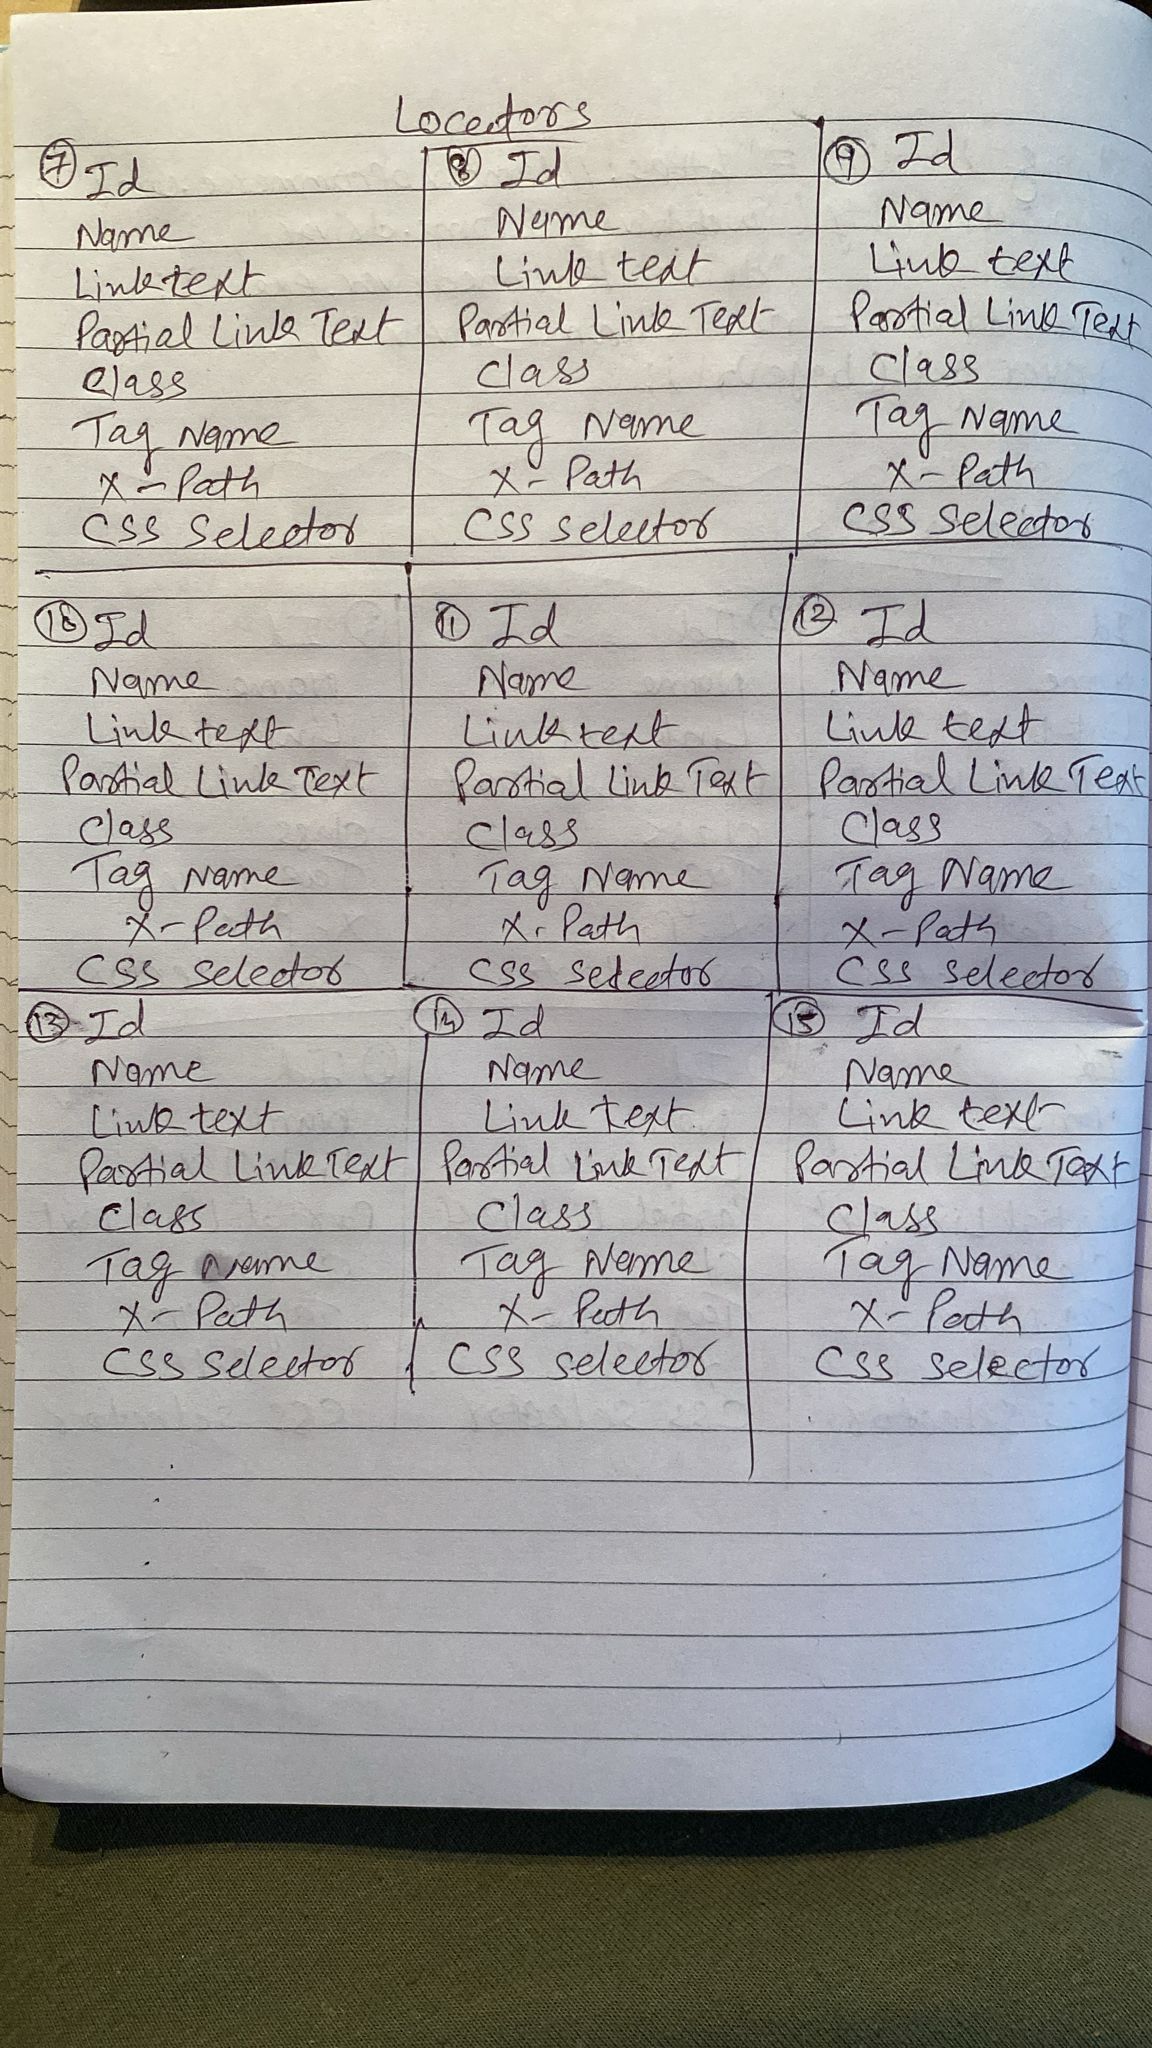 Locators
7 Id
Name
Link text
Partial Link Text
Class
Tag Name
X-Path
CSS Selector
8 Id
Name
Link text
Partial Link Text
Class
Tag Name
X-Path
CSS Selector
9 Id
Name
Link text
Partial Link Text
Class
Tag Name
X-Path
CSS Selector
10 Id
Name
Link text
Partial Link Text
Class
Tag Name
X-Path
CSS Selector
11 Id
Name
Link text
Partial Link Text
Class
Tag Name
X-Path
CSS Selector
12 Id
Name
Link text
Partial Link Text
Class
Tag Name
X-Path
CSS Selector
13 Id
Name
Link text
Partial Link Text
Class
Tag Name
X-Path
CSS Selector
14 Id
Name
Link text
Partial Link Text
Class
Tag Name
X-Path
CSS Selector
15 Id
Name
Link text
Partial Link Text
Class
Tag Name
X-Path
CSS Selector